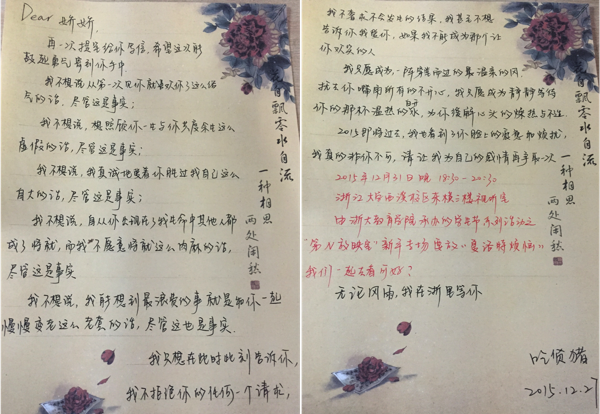 Dear 娇娇,
再一次提笔给你写信,希望这次能
鼓起勇气寄到你手中
我不想说从第一次见你就喜欢你了这么俗
气的话,尽管这是事实;
我不想说,想照顾你一生与你共度余生这么
虚假的话,尽管这是事实;
我不想说,我真诚地爱着你胜过我自己这么
自大的话,尽管这是事实;
我不想说,自从你出现在了我生命中其他人都
成了将就,而我"不愿意将就"这么肉麻的话,
尽管这是事实
我不想说,我能想到最浪漫的事就是和你一起
慢慢变老这么老套的话,尽管这也是事实.
我只想在此时此刻告诉你,
我不拒绝你的任何一个请求,
花自飘零水自流
一种相思
两处闲愁
我不看会不会发生的结果,我甚至不想
告诉你我爱你,如果我不能成为那个让
你欢笑的人
我只愿成为一阵穿堂而过的最温柔的风,
我只愿成为静静等待
你的那杯温热的水,为你缓解心头的燥热与不适
2015即将过去,我也看到了你脸上的疲惫和烦扰,
我真的非你不可,请让我为自己的感情再争取一次
2015年12月31日晚 18:30-20:30
浙江大学西溪校区东
由浙大教育学院承办的学生节系列活动之
"第N放映室"新年专场 播放《夏洛特烦恼》
我们一起去看可好?
无论风雨,我在浙里等你
吃货猪
2015.12.27
花自飘零水自流
一种相思
两处闲愁